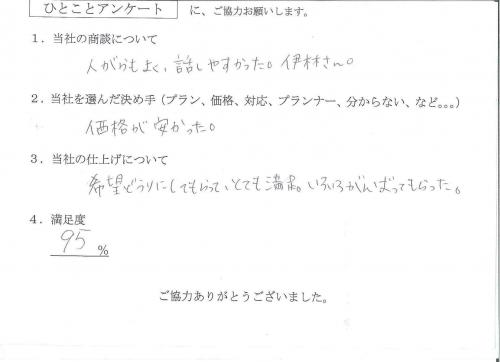 ひとことアンケート に、ご協力お願いします。
1．当社の商談について
人がらもよく、話しやすかった。伊林さん。
2．当社を選んだ決め手（プラン、価格、対応、プランナー、分からない、など。。。）
価格が安かった。
3．当社の仕上げについて
希望どうりにしてもらって、とても満足。いろいろがんばってもらった。
4．満足度
95 %
ご協力ありがとうございました。